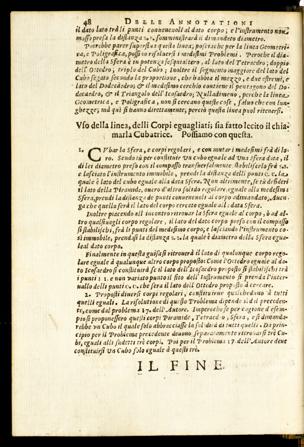 48 DELLE ANNOTATIONI
il dato lato trà li punti conueneuoli al dato corpo; e l'instrumento non
mosso presa la distanza 2. 2. somministrarà il dimandato diametro.
Potrebbe parer superflua questa linea, posciache per la linea Geometri-
ca, e Poligrafica, possono risoluersi i medesimi Problemi. Perche il dia-
metro della sfera è in potenza sesquialtero, al lato del Tetraedro; doppio
dell' Ottedro, triplo del Cubo; Inoltre il segmento maggiore del lato del
Cubo segato secondo la proportione, che habbia il mezzo, e due estremi, è
lato del Dodecaedro; & il medesimo cerchio contiene il pentagono del Do-
decaedro, & il Triangolo dell' Icosaedro; Nulladimeno, perche le linea,
Geometrica, e Poligrafica, non si cercano queste cose, saluo che con lun-
ghezze; mà quì si hanno direttamente, perciò questa linea può ritenersi.
Vso della linea, delli Corpi eguagliati; sia fatto lecito il chia-
marla Cubatrice. Possiamo con questa.
1. CVbar la Sfera, e corpi regolari, e con mutar i medesimi frà di lo-
ro. Sendosi per constituire Vn cubo eguale ad Vna Sfera data, il
di lei diametro preso con il compasso
lasciato l'instrumento immobile, prenda la distanza delli punti c. c. la
quale è lato del cubo eguale alla data Sfera. Non altrimente, se si desideri
il lato della Piramide, ouero d'altro solido regolare, eguale alla medesima
Sfera, prendi la distanza de punti conuenienti al corpo addomandato, Auen-
ga che quella sarà il lato del corpo cercato eguale alla data Sfera.
Inoltre piacendo all'incontro ritrouar la Sfera eguale al corpo, ò ad al-
tro qualsiuogli corpo regolare, il lato del dato corpo preso con il compasso
si stabilischi, frà li punti del medemo corpo, e lasciando l'instrumento co-
sì immobile, prendasi la distanza 2. 2. la quale è diametro della Sfera egua-
le al dato corpo.
Finalmente in questa guisa si ritrouarà il lato di qualunque corpo rego-
lare eguale à qualunque altro corpo proposto: Come l'Ottedro eguale al da-
to Icosaedro si constituirà se il lato dell' Icosaedro proposto si stabilischi trà
i punti i i. e non variato punto il sito dell' Instrumento si prenda l'inter-
uallo delle punte o. o. che sarà il lato dell' Ottedro proposto à cercare.
2. Propositi diuersi corpi regolari, constituirne qualchedun'à tutti
quelli eguale. La resolutione di questo Problema dipende sì dal preceden-
te, come dal problema 17. dell' Autore. Imperoche per cagione d'esem-
pio si proponessero questi corpi Piramide, Tetraedro, Sfera, e si dimandas-
rebbe Vn Cubo il quale solo abbracciasse la solidità di tutti quelli. Da prin-
cipio per il Problema precedente dirano separatamente ritrouarsi trè Cu-
bi, eguali alli sudetti trè corpi. Poi per il Problema 17. dell' Autore deue
constituirsi Vn Cubo solo eguale à questi trè.
IL FINE